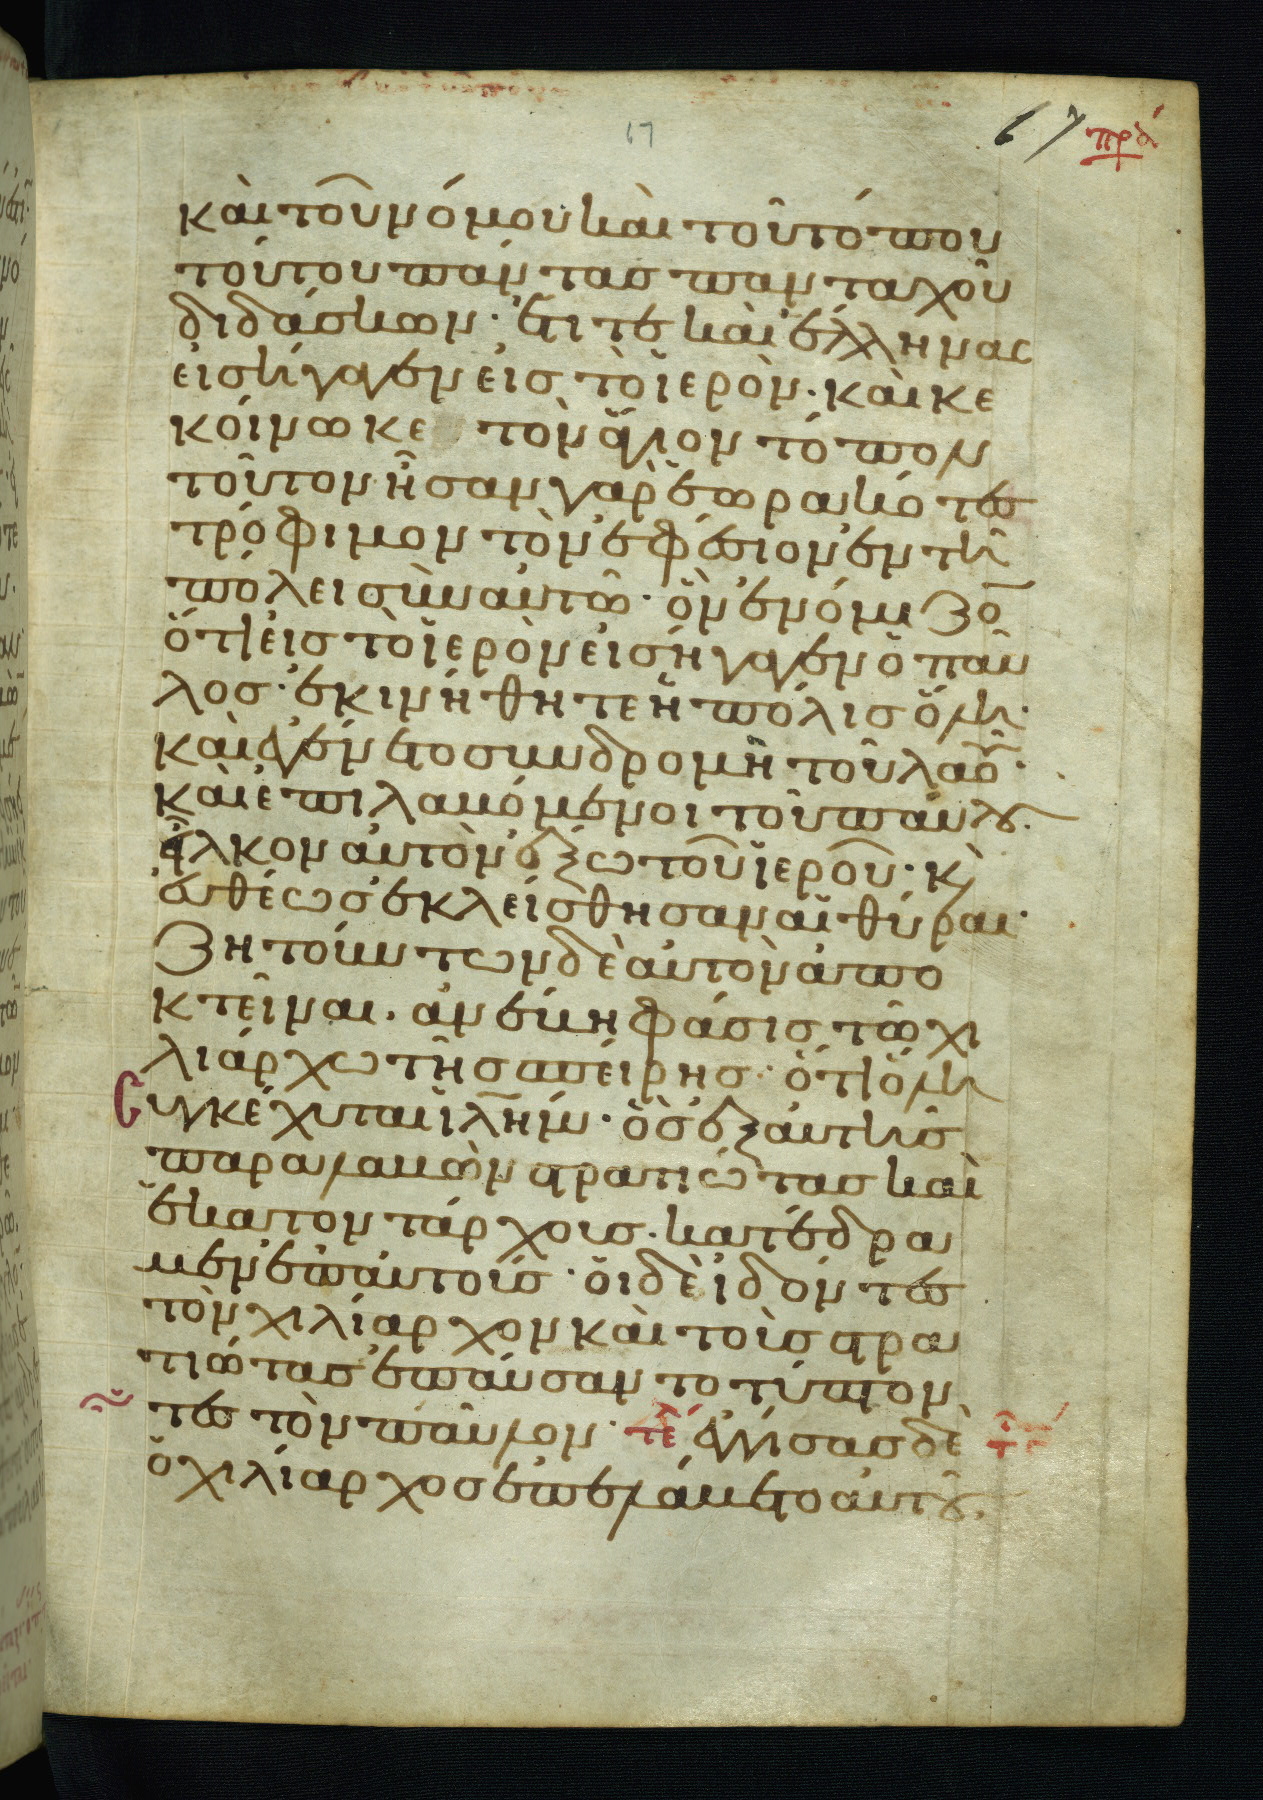 17
67 πρα
καὶ τοῦ νόμου καὶ τοῦ τόπου
τούτου πάντας πανταχοῦ
διδάσκων· ἔτι τε καὶ ἕλληνας
εἰσήγαγεν εἰς τὸ ἱερὸν· καὶ κε
κοίνωκε τὸν ἅγιον τόπον
τοῦτον ἦσαν γὰρ ἑωρακότες
τρόφιμον τὸν ἐφέσιον ἐν τῆ
πόλει σὺν αὐτῶ· ὃν ἐνόμιζον
ὅτι εἰς τὸ ἱερὸν εἰσήγαγεν ὁ παῦ
λος· ἐκινήθη τε ἡ πόλις ὅλη·
καὶ ἐγένετο συνδρομὴ τοῦ λαοῦ·
καὶ ἐπιλαβόμενοι τοῦ παύλου·
εἷλκον αὐτὸν ἔξω τοῦ ἱεροῦ· κὰι
εὐθέως ἐκλείσθησαν αἱ θύραι·
ζητούντων δὲ αὐτὸν ἀπο
κτεῖναι· ἀνέβη φάσις τῶ χι
λιάρχω τῆς σπείρης· ὅτι ὅλη
Συγκέχυται ἱλῆμ· ὃς ἐξαυτῆς
παραλαβὼν στρατιώτας καὶ
ἑκατοντάρχους· κατέδρα
μεν ἐπ αὐτούς· οἱ δὲ ἰδόντες
τὸν χιλίαρχον καὶ τοὺς στρα
τιώτας ἐπαύσαντο τύπτον
τες τὸν παῦλον· τε ἐγγίσας δὲ
ὁ χιλίαρχος ἐπελάβετο αὐτοῦ·